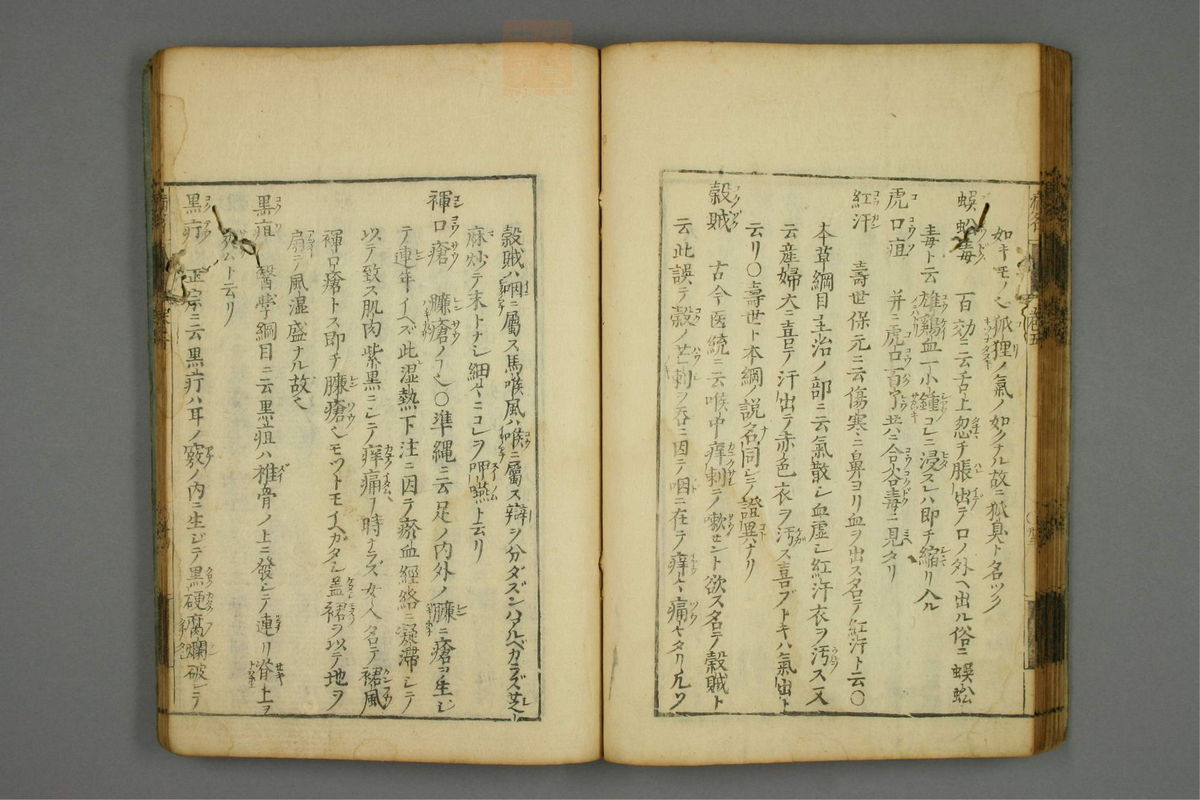 如キモノ也狐狸ノ氣ノ如クナル故ニ狐臭ト名ツク
蜈蚣毒 百効ニ云舌上忽チ脹出テロノ外ヘ出ル俗ニ蜈蚣
毒ト云雄鷄血一小鍾コレニ浸スレハ即チ縮リ入ル
虎口疽 并ニ虎口百丫共ニ合谷毒ニ見タリ
紅汗 壽世保元ニ云傷寒ニ鼻ヨリ血ヲ出ス名テ紅汗ト云〇
本草綱目主治ノ部ニ云氣散シ血虚シ紅汗衣ヲ汚ス又
云産婦大ニ喜ヒテ汗出テ赤色衣ヲ汚ス喜ブトキハ氣出ト
云リ〇壽世ト本綱ノ説名同シテ證異ナリ
穀賊 古今医統ニ云喉中痒刺テ嗽セント欲ス名テ穀賊ト
云此誤テ穀ノ芒刺ヲ吞ニ因テ咽ニ在テ痒ヒ痛セタリ凡ソ
穀賊ハ咽ニ屬ス馬喉風ハ喉ニ屬ス辯ヲ分ダズンハアルベカラズ芝
麻炒テ末トナシ細々ニコレヲ呷嚥ト云リ
褌口瘡 臁瘡ノ也〇準縄ニ云足ノ内外ノ臁ニ瘡ヲ生シ
テ連年イヘズ此湿熱下注ニ因テ瘀血經絡ニ凝滯シテ
以テ致ス肌肉紫黒ニシテ痒痛時ナラズ女人名テ裙風
褌口瘡トス即チ臁瘡也モツトモイヘガタシ盖裙ヲ以テ地ヲ
扇テ風湿盛ナル故也
黒疽 醫學綱目ニ云黒疽ハ椎骨ノ上ニ發シテ連リ脊上ヲ
ムト云リ
黒疔 正宗ニ云黒疔ハ耳ノ竅ノ内ニ生シテ黒硬腐爛破シテ